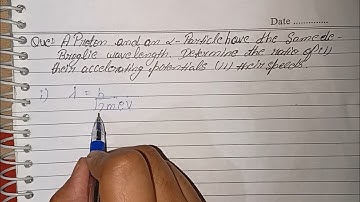 Date ..............
Que: A Proton and an α-Particle have the Same de-
Broglie wavelength. Determine the ratio of (i)
their accelerating potentials (ii) their speeds.
i) λ = h
√2meV